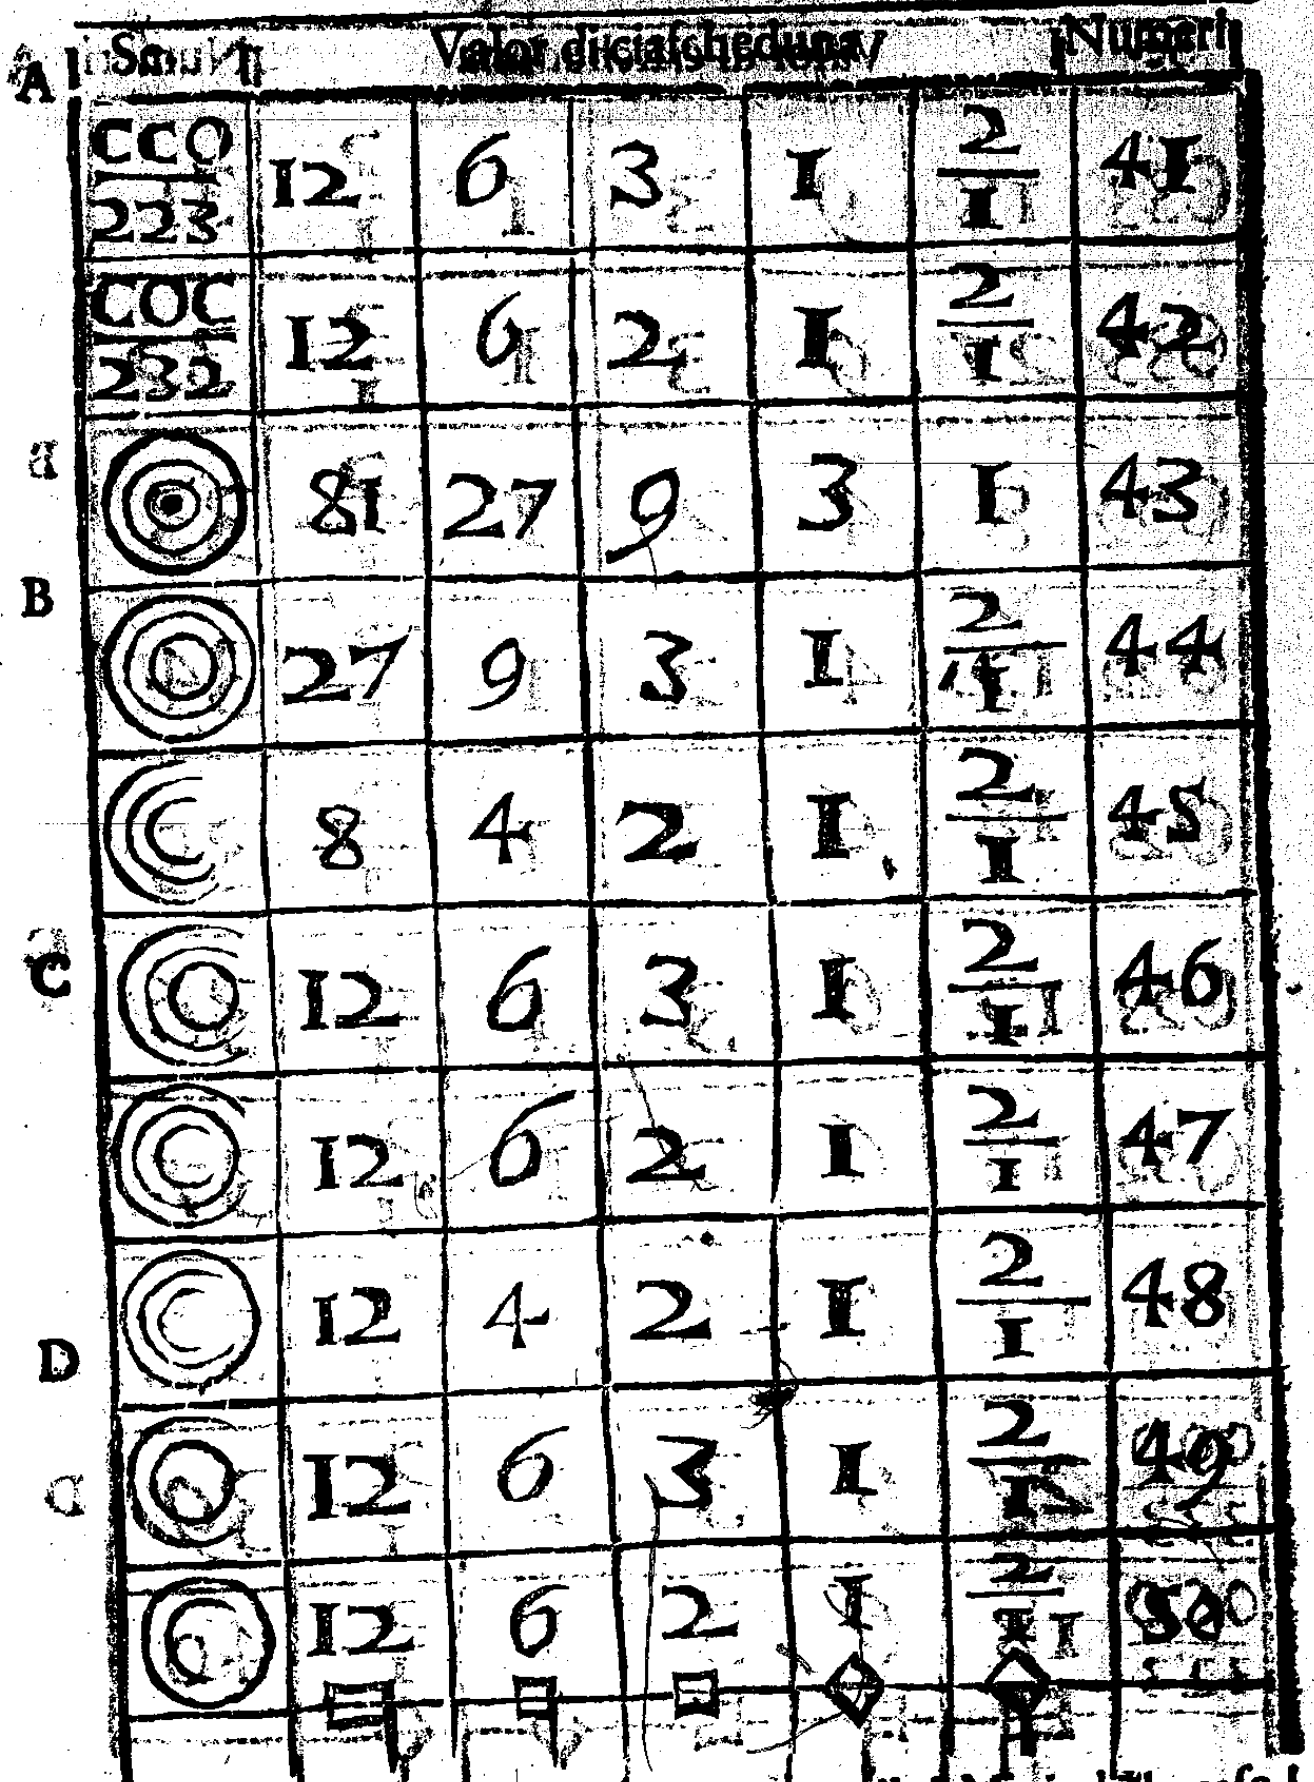 A Valor di ciascheduna Numeri
CCO
223 12 6 3 1 2/1 41
COC
232 12 6 2 1 2/1 42
81 27 9 3 1 43
B
27 9 3 1 2/1 44
8 4 2 1 2/1 45
C 12 6 3 1 2/1 46
12 6 2 1 2/1 47
12 4 2 1 2/1 48
D
12 6 3 1 2/1 49
12 6 2 1 2/1 50